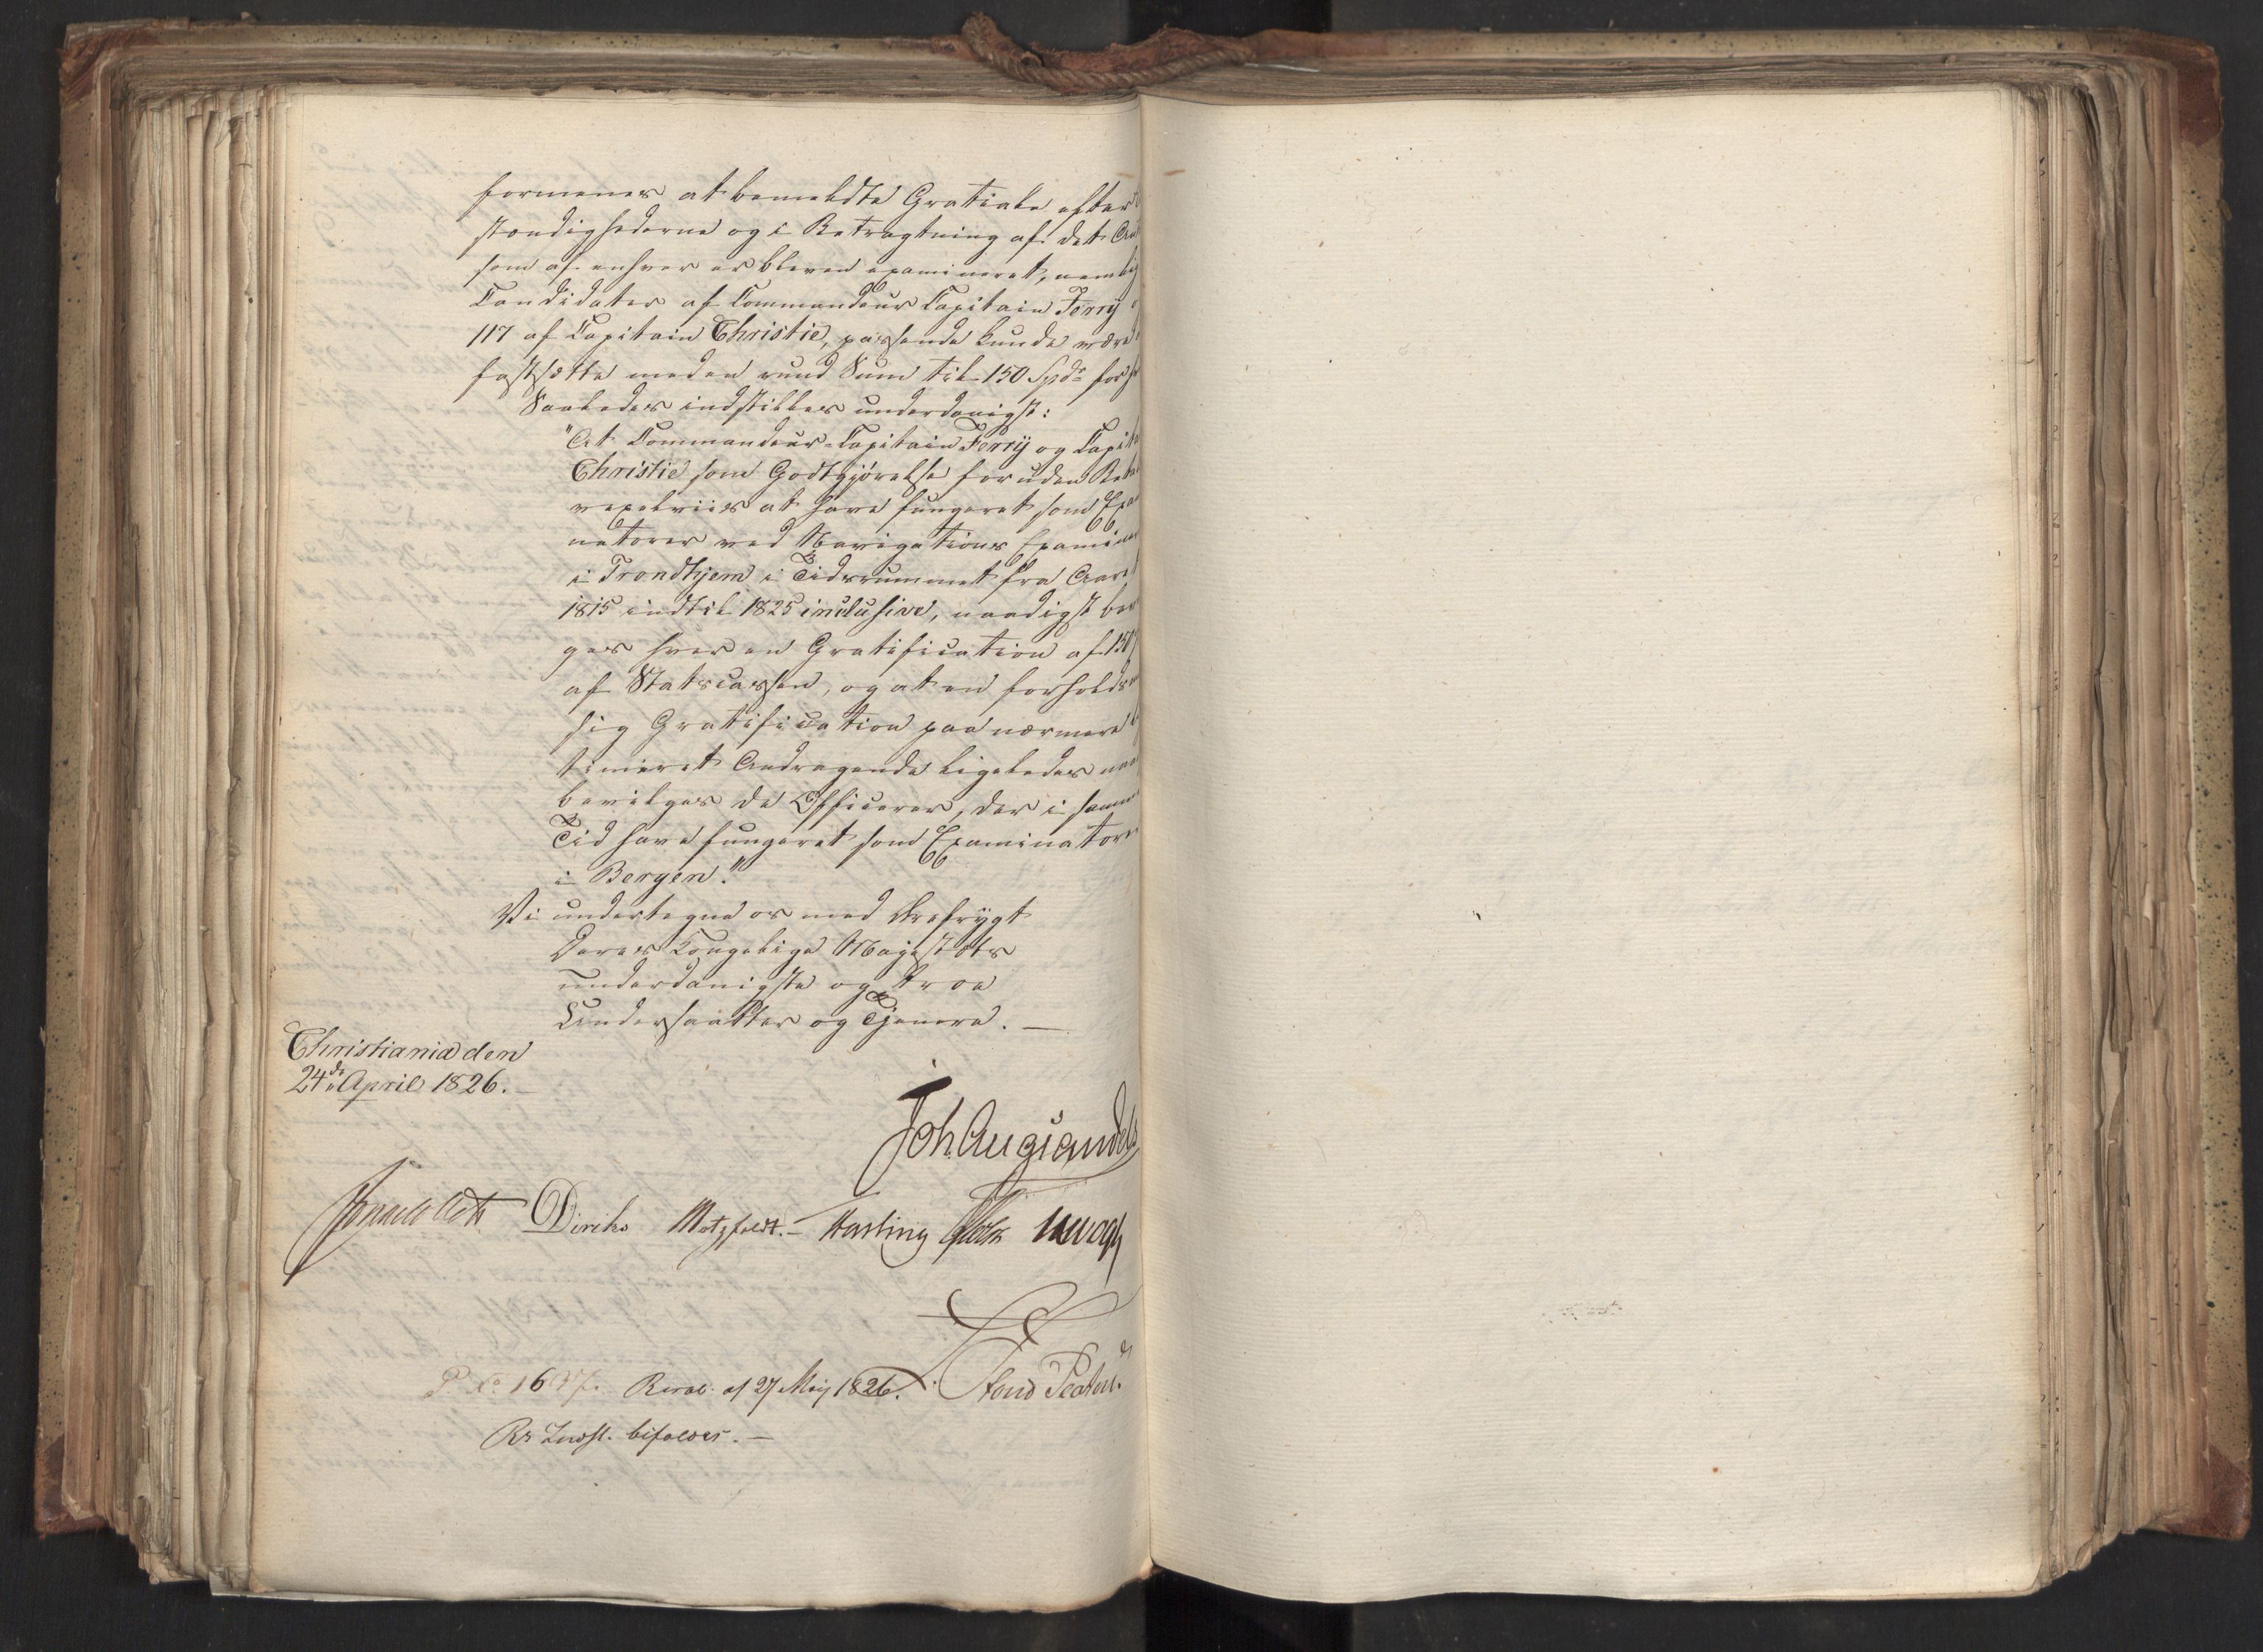 formenes at bemeldte Gratiale efter
stændighederne og i Betragtning af det
som af enhver er bleven examineret, nemlig
Candidater af Commandeur Capitain Ferry
117 af Capitain Christie, passende kunde være
fastsætte med en rund Sum til 150 Spdr for
Saaledes indstilles underdanigst:
"At Commandeur-Capitain Ferry og
Christie som Godtgjørelse for uden
vexelviis at have fungeret som
natorer ved Navigations
i Trondhjem i Tidsrummet fra Aaret
1815 indtil 1825 inclusive, naadigst
ges hver en Gratification af 150
af Statscassen, og at en
sig Gratification paa nærmere
Andragende ligeledes
bevilges de Officerer, der i samme
Tid have fungeret som Examinatorer
i Bergen."
Vi undertegne os med Ærefrygt
Deres Kongelige Majestæts
underdanigste og troe
Undersaatter og Tjenere. —
Christiania den
24de April 1826. —
Joh Aug Sandels
Diriks Motzfeldt. Fasting
Resol: af 27 Maij 1826.
Rs Indst. bifaldes. —